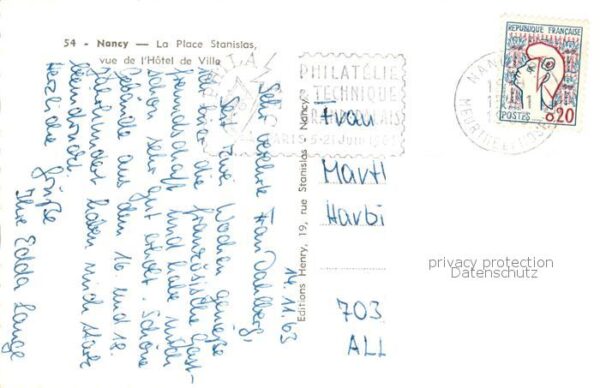 54 - Nancy — La Place Stanislas,
vue de l'Hôtel de Ville
14.11.63
Sehr verehrte Frau Dahlberg,
Seit zwei Wochen genieße
ich hier die französische Gast-
freundschaft und habe mich
schon sehr gut erholt. Schöne
Gebäude aus dem 16. und 18.
Jahrhundert haben mich stark
beeindruckt.
Herzliche Grüße
Ihre Edda Lange
Editions Henry, 19, rue Stanislas Nancy
PHILATÉLIE
TECHNIQUE
PARIS 5-21 Juin 1964
NANCY
MEURTHE-ET-MOSELLE
REPUBLIQUE FRANÇAISE
POSTES
0,20
Frau
Martl
Harbi
703
ALL
privacy protection
Datenschutz